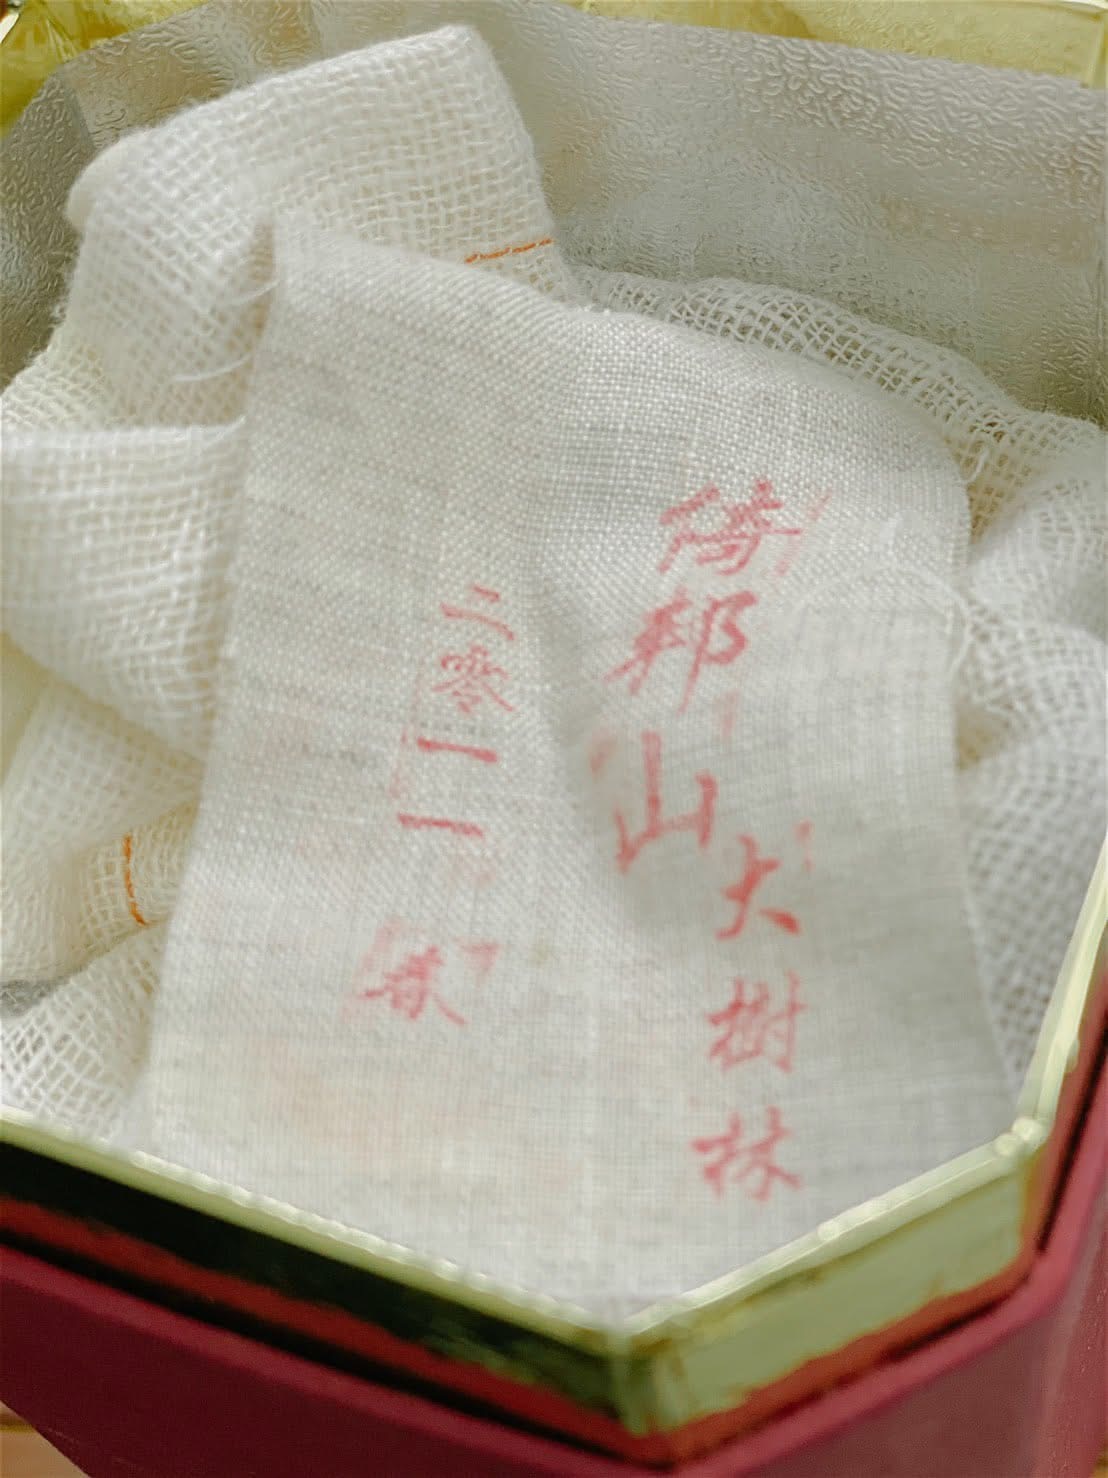 倚邦山大樹林
二零一一春